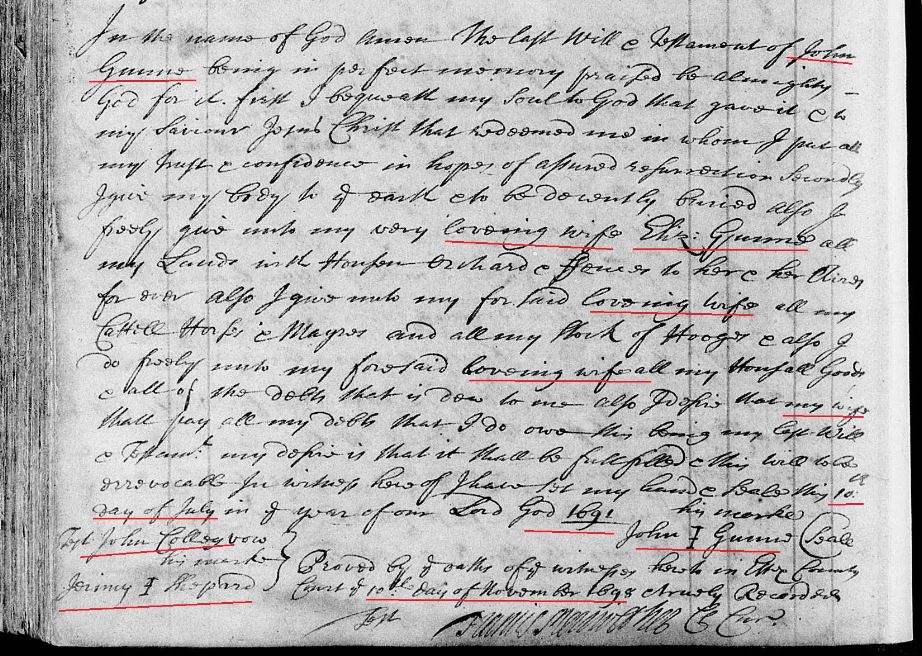 In the name of God Amen The last Will & Testament of John
Gunne being in perfect memory praised be almighty
God for it. first I bequeath my Soul to God that gave it & to
my Saviour Jesus Christ that redeemed me in whom I put all
my trust & confidence in hopes of assured resurrection Secondly
I give my body to ye earth & to be decently buried also I
freely give unto my very loveing wife Eliz: Gunne all
my Lands with Housen Orchard & ffences to her & her
for ever also I give unto my forsaid loveing wife all my
Cattell Horses & Mayres and all my Stock of Hooges & also I
do freely unto my foresaid loveing wife all my Housall Goods
& all of the debts that is dew to me also I desire that my wife
shall pay all my debts that I do owe this being my last Will
& Testamt. my desire is that it shall be fullfilled & this will to be
errevocable In witness here of I have set my hand & seale this 10th
day of July in ye year of our Lord God 1691 his marke
Test John John I Gunne Seale
his marke
Jerimy I Sheperd Proved by ye oaths of ye witnesses hereto in Essex County
Court ye 10th day of November 1698 & truely Recorded
Test Francis Meriwether Cl Cur.